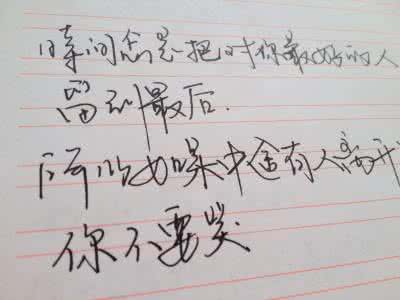 時间总是把对你最好的人
留到最后.
所以如果中途有人离开
你不要哭